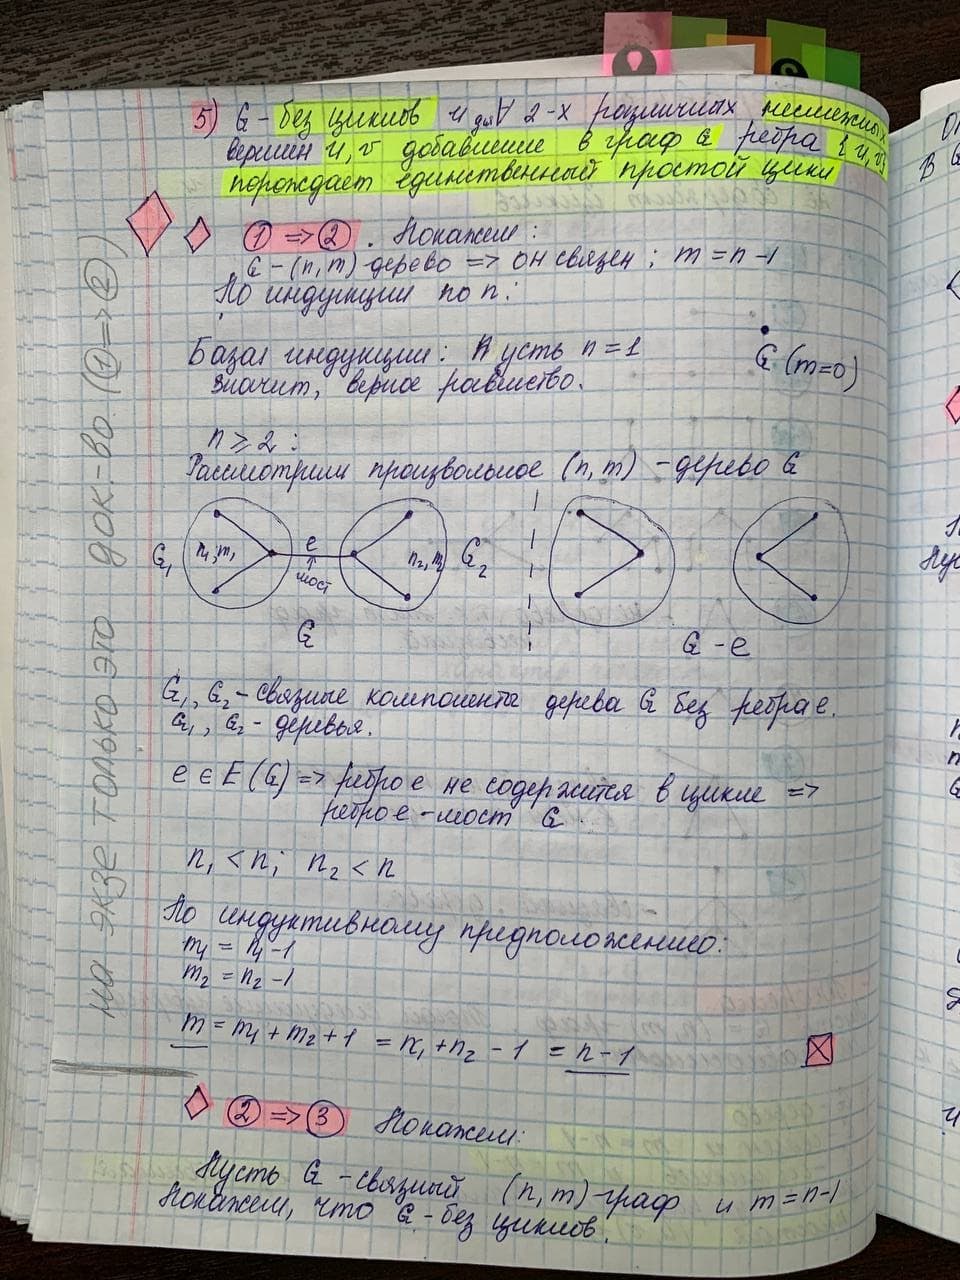 5) G - без циклов и для ∀ 2-х различных несмежных
вершин u, v добавление в граф G ребра {u, v}
порождает единственный простой цикл
① => ②. Покажем:
G - (n, m) - дерево => он связен; m = n - 1
По индукции по n:
База индукции: Пусть n = 1
Значит, верное равенство.
G (m=0)
n ≥ 2:
Рассмотрим произвольное (n, m) - дерево G
G₁ n₁, m₁ e мост n₂, m₂ G₂
G
G - e
G₁, G₂ - связные компоненты дерева G без ребра e.
G₁, G₂ - деревья.
e ∈ E(G) => ребро e не содержится в цикле =>
ребро e - мост G
n₁ < n; n₂ < n
По индуктивному предположению:
m₁ = n₁ - 1
m₂ = n₂ - 1
m = m₁ + m₂ + 1 = n₁ + n₂ - 1 = n - 1
② => ③ Покажем:
Пусть G - связный (n, m) - граф и m = n - 1
Покажем, что G - без циклов.
на экзе только это док-во (① => ②)